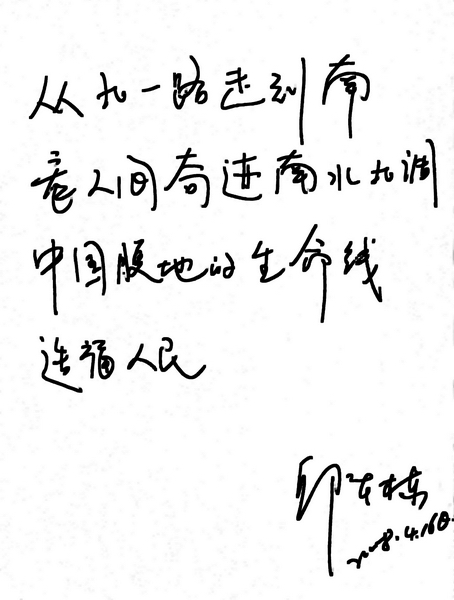 从北一路走到南
人间奇迹南水北调
中国腹地的生命线
造福人民
2008.4.16日